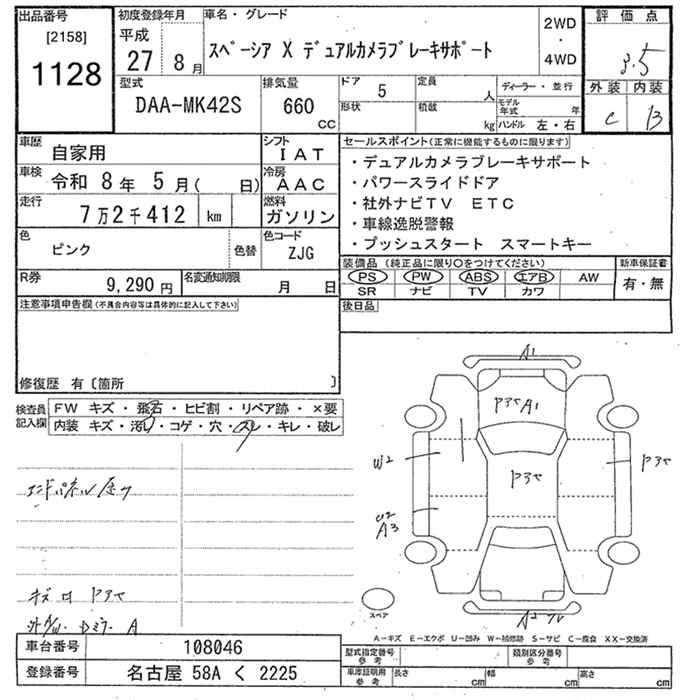 出品番号 初度登録年月 車名・グレード 2WD・4WD 評価点
[2158] 1128 平成 27年 8月 スペーシア X デュアルカメラブレーキサポート 3.5
型式 排気量 ドア 5 定員 人 ディーラー・並行 外装 内装
DAA-MK42S 660 CC 形状 積載 kg モデル年式 年 C B
ハンドル 左・右
車歴 自家用 シフト IAT セールスポイント(正常に機能するものに限ります)
車検 令和 8年 5月( 日) 冷房 AAC ・デュアルカメラブレーキサポート
・パワースライドドア
走行 7万2千412 km 燃料 ガソリン ・社外ナビTV ETC
・車線逸脱警報
色 ピンク 色替 色コード ZJG ・プッシュスタート スマートキー
R券 9,290円 名変通知期限 月 日 装備品(純正品に限り○をつけてください) 新車保証書
PS PW ABS エアB AW 有・無
SR ナビ TV カワ
注意事項申告欄(不具合内容等は具体的に記入して下さい) 後日品
修復歴 有〔箇所 〕
検査員記入欄 FW キズ・飛石・ヒビ割・リペア跡・×要
内装 キズ・汚れ・コゲ・穴・スレ・キレ・破レ
A1
Pヌケ A1
W2
Pヌケ
Pヌケ
U2
A3
エンドパネル 曲り
キズ 凹 Pヌケ
外A/W Dミラー A
スペア
A2
A-キズ E-エクボ U-凹み W-補修跡 S-サビ C-腐食 XX-交換済
車台番号 108046 型式指定番号 参考 類別区分番号 参考
登録番号 名古屋 58A く 2225 車庫証明用 参考 長さ cm 幅 cm 高さ cm